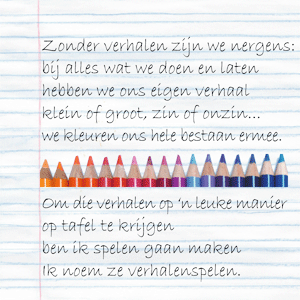 Zonder verhalen zijn we nergens:
bij alles wat we doen en laten
hebben we ons eigen verhaal
klein of groot, zin of onzin...
we kleuren ons hele bestaan ermee.
Om die verhalen op 'n leuke manier
op tafel te krijgen
ben ik spelen gaan maken
Ik noem ze verhalenspelen.